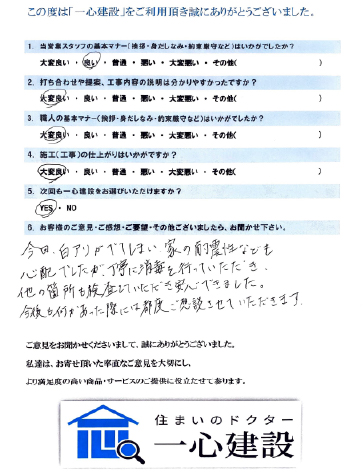 この度は「一心建設」をご利用頂き誠にありがとうございました。
1. 当営業スタッフの基本マナー(挨拶・身だしなみ・約束厳守など)はいかがでしたか?
大変良い ・ 良い ・ 普通 ・ 悪い ・ 大変悪い ・ その他( )
2. 打ち合わせや提案、工事内容の説明は分かりやすかったですか?
大変良い ・ 良い ・ 普通 ・ 悪い ・ 大変悪い ・ その他( )
3. 職人の基本マナー(挨拶・身だしなみ・約束厳守など)はいかがでしたか?
大変良い ・ 良い ・ 普通 ・ 悪い ・ 大変悪い ・ その他( )
4. 施工(工事)の仕上がりはいかがですか?
大変良い ・ 良い ・ 普通 ・ 悪い ・ 大変悪い ・ その他( )
5. 次回も一心建設をお選びいただけますか?
YES ・ NO
6. お客様のご意見・ご感想・ご要望・その他ございましたら、お聞かせ下さい。
今回、白アリがでてしまい、家の耐震性なども
心配でしたが、丁寧に消毒を行っていただき、
他の箇所も検査していただき安心できました。
今後も何かあった際には都度ご相談させていただきます。
ご意見をお聞かせくださいまして、誠にありがとうございました。
私達は、お寄せ頂いた率直なご意見を大切にし、
より満足度の高い商品・サービスのご提供に役立たせて参ります。
住まいのドクター
一心建設